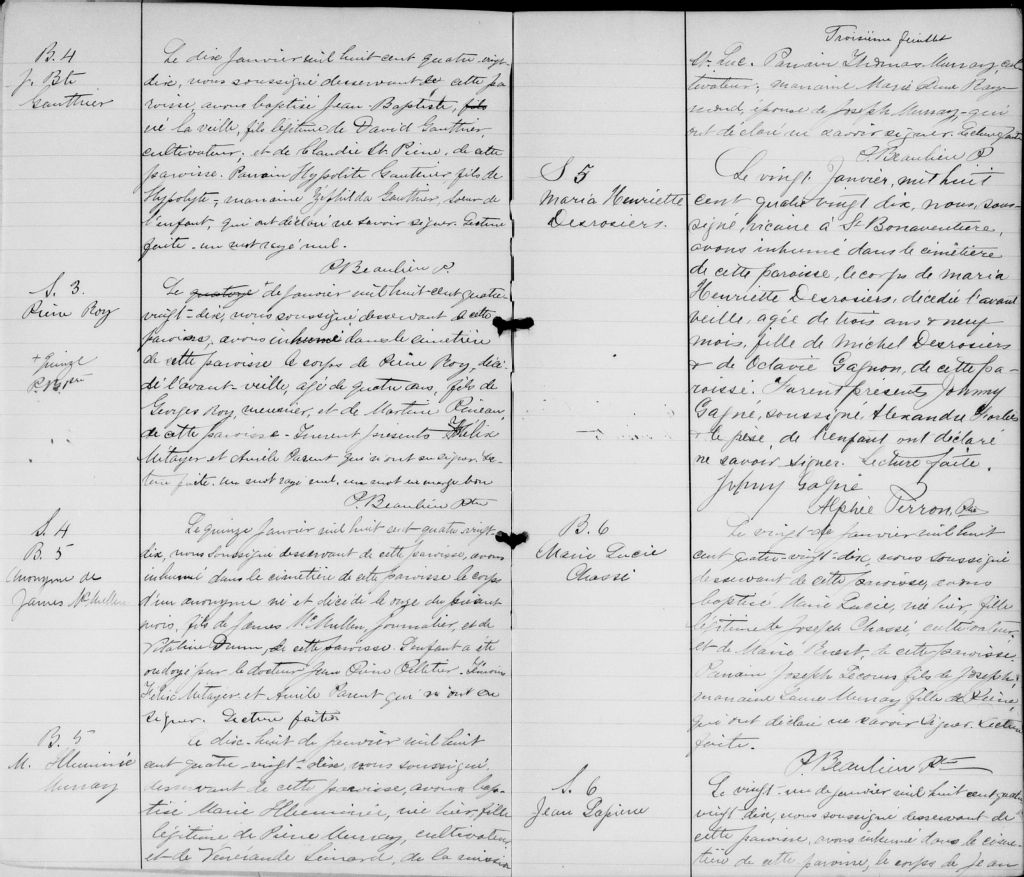 B. 4
J. Bte
Gauthier
Le dix Janvier mil huit cent quatre-vingt-
dix, nous soussigné desservant de cette pa-
roisse, avons baptisé Jean-Baptiste, fils
né la veille, fils légitime de David Gauthier,
cultivateur, et de Claudia St Pierre, de cette
paroisse. Parrain Hypolite Gauthier, fils de
Hypolyte, marraine Zéphilda Gauthier, soeur de
l'enfant, qui ont déclaré ne savoir signer. Lecture
faite. un mot rayé nul.
P. Beaulieu P.
S. 3.
Pierre Roy
+ quinze
Le quatorze de Janvier mil huit cent quatre
vingt-dix, nous soussigné desservant de cette
paroisse, avons inhumé dans le cimetière
de cette paroisse le corps de Pierre Roy, décé-
dé l'avant-veille, agé de quatre ans, fils de
Georges Roy, menuisier, et de Martine Pineau,
de cette paroisse. Furent présents Félix
Métayer et Aurèle Parent qui n'ont su signer. Lec-
ture faite. un mot rayé nul, un mot en marge bon
P. Beaulieu Ptre
S. 4
B. 5
Anonyme de
James McMullen
Le quinze Janvier mil huit cent quatre-vingt-
dix, nous soussigné desservant de cette paroisse, avons
inhumé dans le cimetière de cette paroisse le corps
d'un anonyme né et décédé le onze du présent
mois, fils de James McMullen, journalier, et de
Vitaline Dumn, de cette paroisse. L'enfant a été
ondoyé par le docteur Jean Pierre Pelletier. Témoins
Félix Métayer et Aurèle Parent qui n'ont su
signer. Lecture faite
B. 5
M. Illuminée
Murray
Le dix-huit de Janvier mil huit
cent quatre-vingt-dix, nous soussigné
desservant de cette paroisse, avons bap-
tisé Marie Illuminée, née hier, fille
légitime de Pierre Murray, cultivateur,
et de Vénérande Simard, de la mission
Troisième feuillet
St. Luc. Parrain Thomas Murray, cul-
tivateur; marraine Marie Luce Ray-
mond, épouse de Joseph Murray, qui
ont déclaré ne savoir signer. Lecture faite
P. Beaulieu P.
S 5
Maria Henriette
Desrosiers.
Le vingt Janvier, mil huit
cent quatre vingt dix, nous, sous-
signé, vicaire à St Bonaventure,
avons inhumé dans le cimétière
de cette paroisse, le corps de Maria
Henriette Desrosiers, décédée l'avant
veille, agée de trois ans & neuf
mois, fille de Michel Desrosiers
& de Octavie Gagnon, de cette pa-
roisse. Furent présents Johnny
Gagné, soussigné, Alexandre
& le père de l'enfant ont déclaré
ne savoir signer. Lecture faite.
Johny Gagné
Alphée Perron, Ptre
B. 6
Marie Lucie
Chassé
Le vingt de Janvier mil huit
cent quatre-vingt-dix, nous soussigné
desservant de cette paroisse, avons
baptisé Marie Lucie, née hier, fille
légitime de Joseph Chassé, cultivateur,
et de Marie Ruest de cette paroisse.
Parrain Joseph Lecours fils de Joseph;
marraine Laura Murray fille de Pierre,
qui ont déclaré ne savoir signer. Lecture
faite.
P. Beaulieu Ptre
S. 6
Jean Lapierre
Le vingt-un de janvier mil huit cent quatre
vingt-dix, nous soussigné desservant de
cette paroisse, avons inhumé dans le cime-
tière de cette paroisse, le corps de Jean